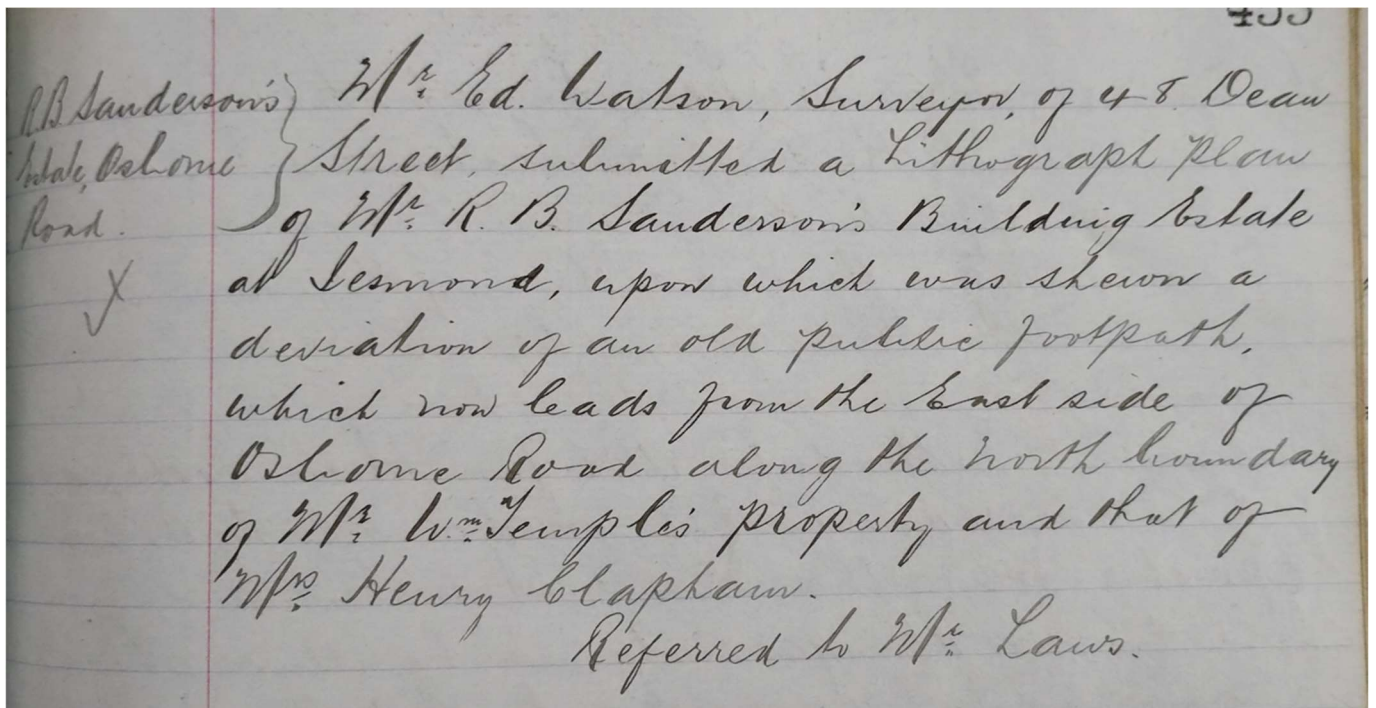 R.B Sanderson's
Estate, Osborne
Road.
Mr. Ed. Watson, Surveyor, of 48 Dean
Street, submitted a Lithograph Plan
of Mr. R. B. Sanderson's Building Estate
at Jesmond, upon which was shewn a
deviation of an old public footpath,
which now leads from the East side of
Osborne Road along the North boundary
of Mr. Wm. Temple's property and that of
Mrs. Henry Clapham.
Referred to Mr. Laws.